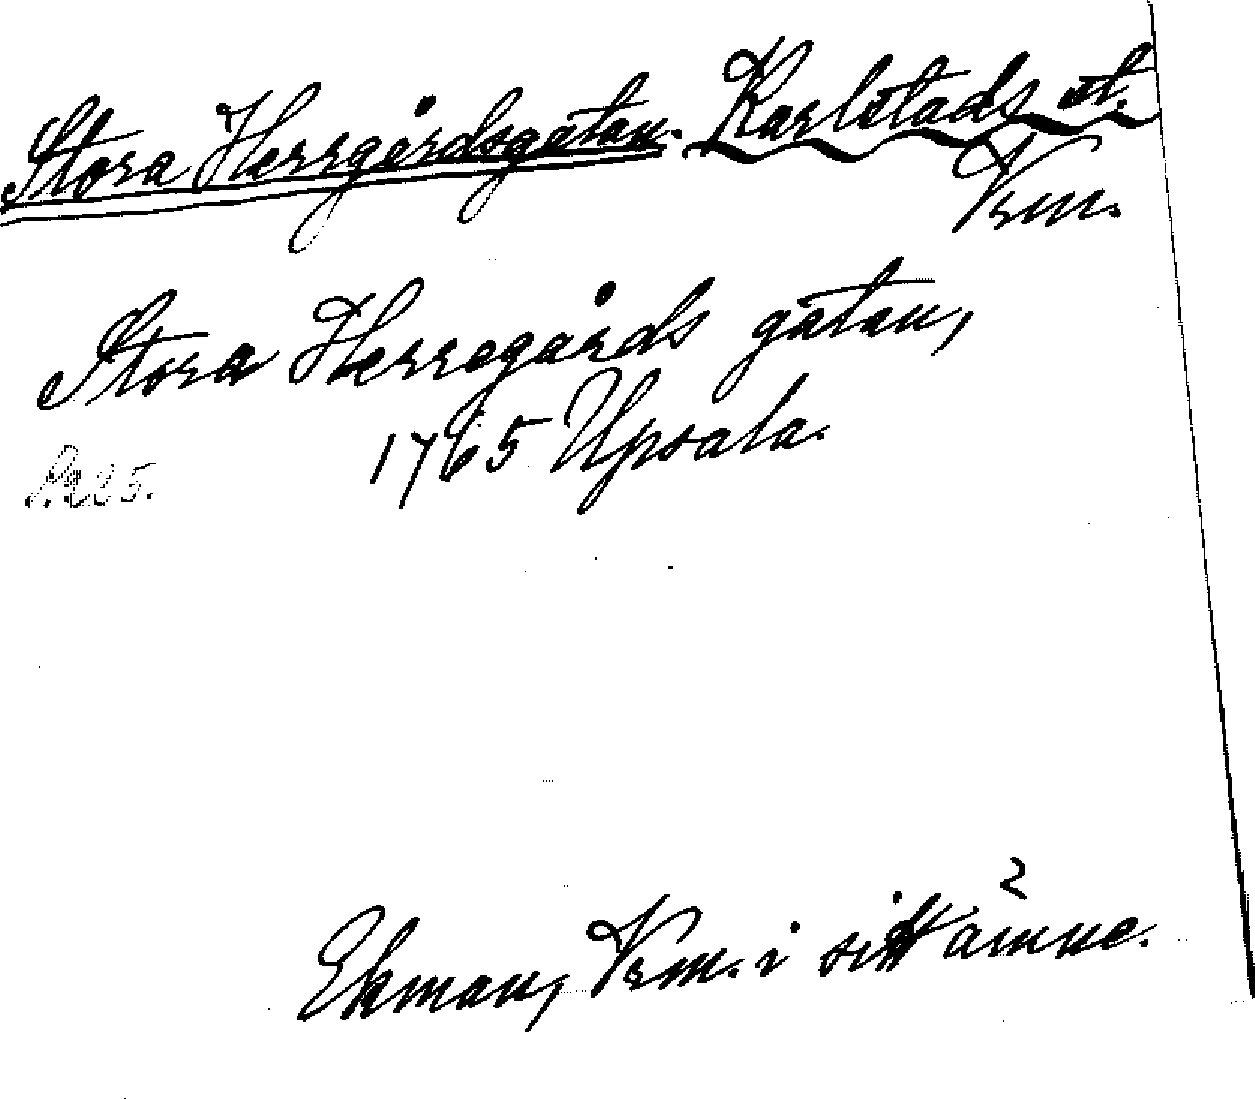 Stora Herrgårdsgatan. Karlstads st.
Vrm.
Stora Herregårds gatan,
1765 Upsala.
Ekman, Vrm. i sitt ämne.